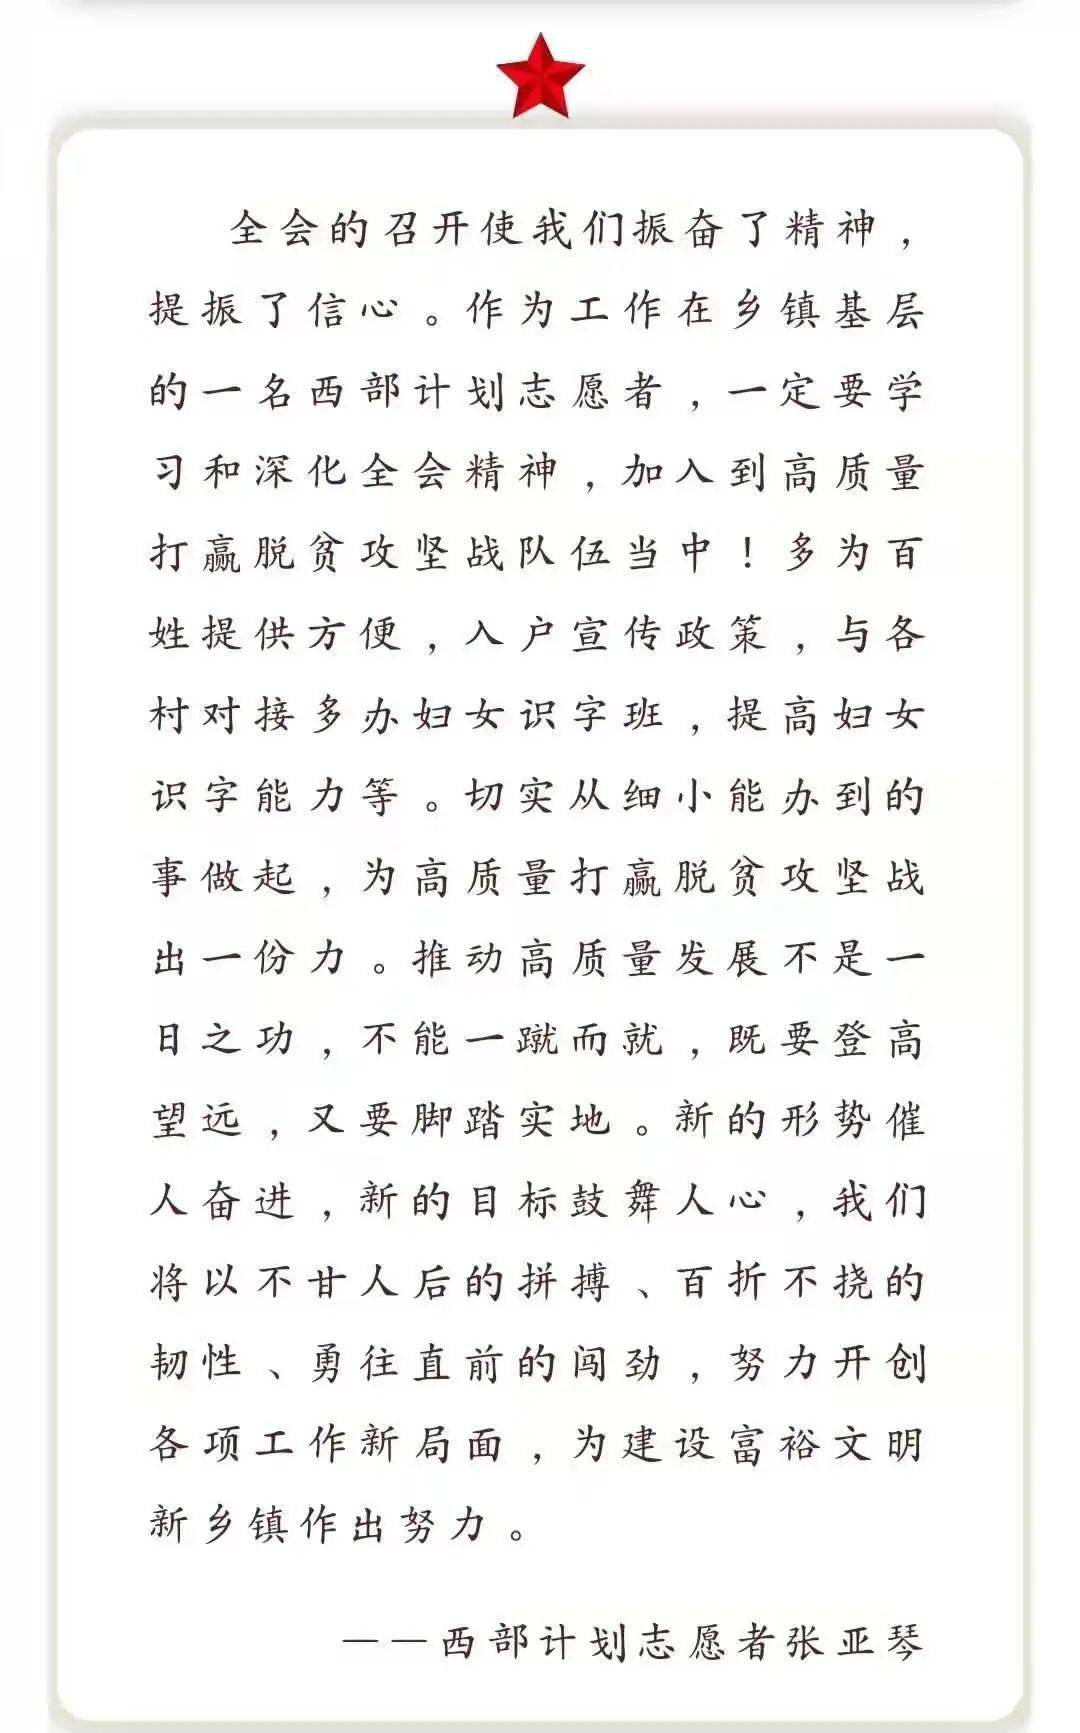 全会的召开使我们振奋了精神，
提振了信心。作为工作在乡镇基层
的一名西部计划志愿者，一定要学
习和深化全会精神，加入到高质量
打赢脱贫攻坚战队伍当中！多为百
姓提供方便，入户宣传政策，与各
村对接多办妇女识字班，提高妇女
识字能力等。切实从细小能办到的
事做起，为高质量打赢脱贫攻坚战
出一份力。推动高质量发展不是一
日之功，不能一蹴而就，既要登高
望远，又要脚踏实地。新的形势催
人奋进，新的目标鼓舞人心，我们
将以不甘人后的拼搏、百折不挠的
韧性、勇往直前的闯劲，努力开创
各项工作新局面，为建设富裕文明
新乡镇作出努力。
——西部计划志愿者张亚琴